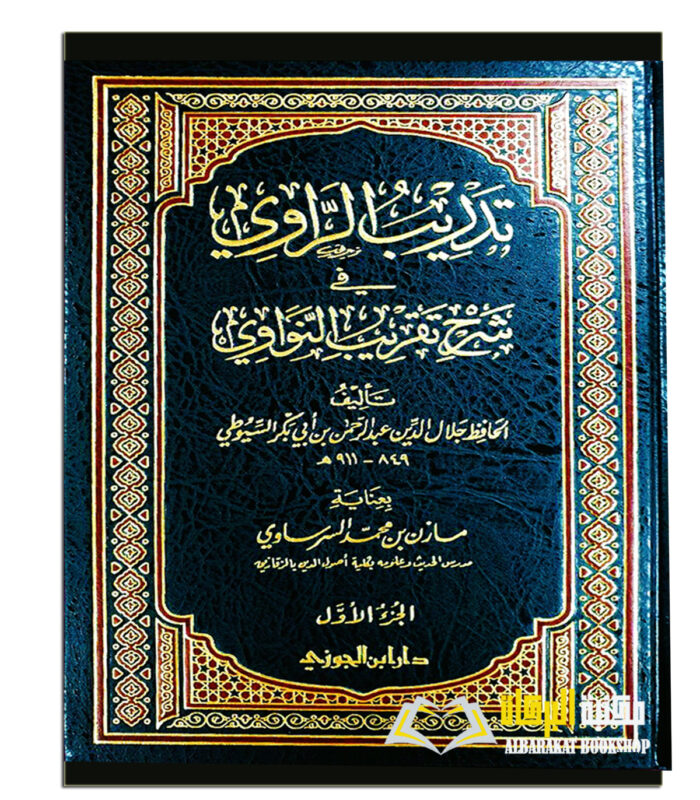 تَدْرِيبُ الرَّاوِي
في
شَرْحِ تَقْرِيبِ النَّوَاوِي
تأليفُ
الحافظ جلال الدِّين عبد الرَّحمٰن بن أبي بكر السّيُوطي
٨٤٩ - ٩١١ هـ
بِعِنَايَةِ
مازن بن محمّد السرساوي
مدرس الحديث وعلومه بكلية أصول الدين بالزقازيق
الجزءُ الأوَّل
دار ابن الجوزي
مكتبة البركات
ALBARAKAT BOOKSHOP